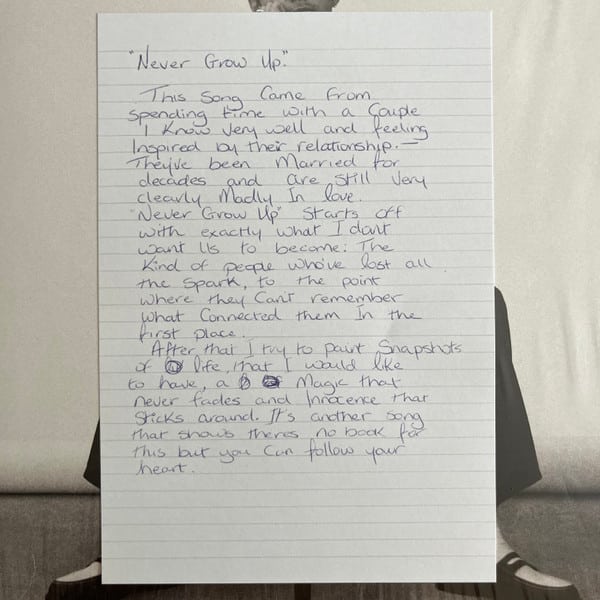 "Never Grow Up."
This Song Came From
spending time with a Couple
I Know Very well and feeling
Inspired by their relationship. —
They've been Married for
decades and are still Very
clearly Madly In love.
"Never Grow Up" Starts off
with exactly what I don't
want Us to become. The
Kind of people who've lost all
the Spark, to the point
where they Can't remember
what Connected them In the
first place.
After that I try to paint Snapshots
of life, that I would like
to have, a Magic that
never fades and Innocence that
Sticks around. It's another song
that shows theres no book for
this but you Can follow your
heart.